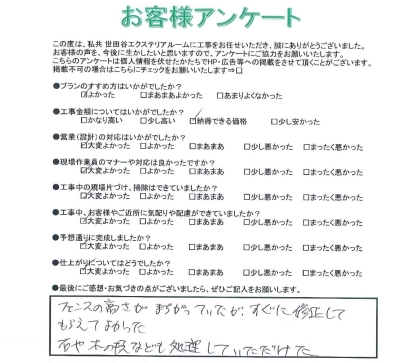 お客様アンケート
この度は、私共 世田谷エクステリアルームに工事をお任せいただき、誠にありがとうございました。
お客様の声を、今後に生かしたいと思いますので、アンケートにご協力をお願いいたします。
こちらのアンケートは個人情報を伏せたかたちでHP・広告等への掲載をさせて頂くことがございます。
掲載不可の場合はこちらにチェックをお願いいたします⇒□
●プランのすすめ方はいかがでしたか?
☑よかった □まあまあよかった □あまりよくなかった
●工事金額についてはいかがでしたか?
□かなり高い □少し高い ☑納得できる価格 □少し安かった
●営業(設計)の対応はいかがでしたか?
☑大変よかった □よかった □まあまあ □少し悪かった □まったく悪かった
●現場作業員のマナーや対応は良かったですか?
☑大変よかった □よかった □まあまあ □少し悪かった □まったく悪かった
●工事中の現場片づけ、掃除はできていましたか?
☑大変よかった □よかった □まあまあ □少し悪かった □まったく悪かった
●工事中、お客様やご近所に気配りや配慮ができていましたか?
☑大変よかった □よかった □まあまあ □少し悪かった □まったく悪かった
●予想通りに完成しましたか?
☑大変よかった □よかった □まあまあ □少し悪かった □まったく悪かった
●仕上がりについてはどうでしたか?
☑大変よかった □よかった □まあまあ □少し悪かった □まったく悪かった
●最後にご感想・お気づきの点がございましたら、ぜひご記入をお願いします。
フェンスの高さが まちがっていたが、すぐに修正して
もらえてよかった
石や木の根なども処理していただけた